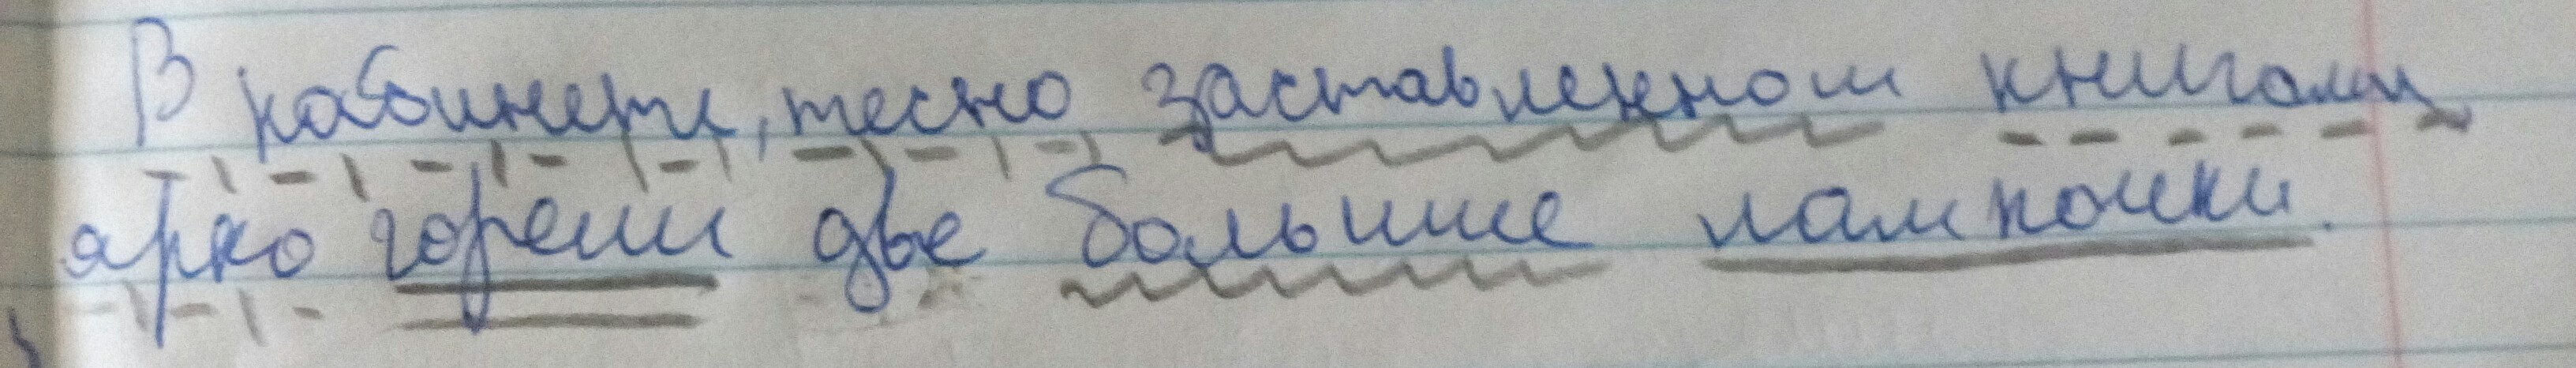 В кабинете, тесно заставленном книгами
ярко горели две большие лампочки.